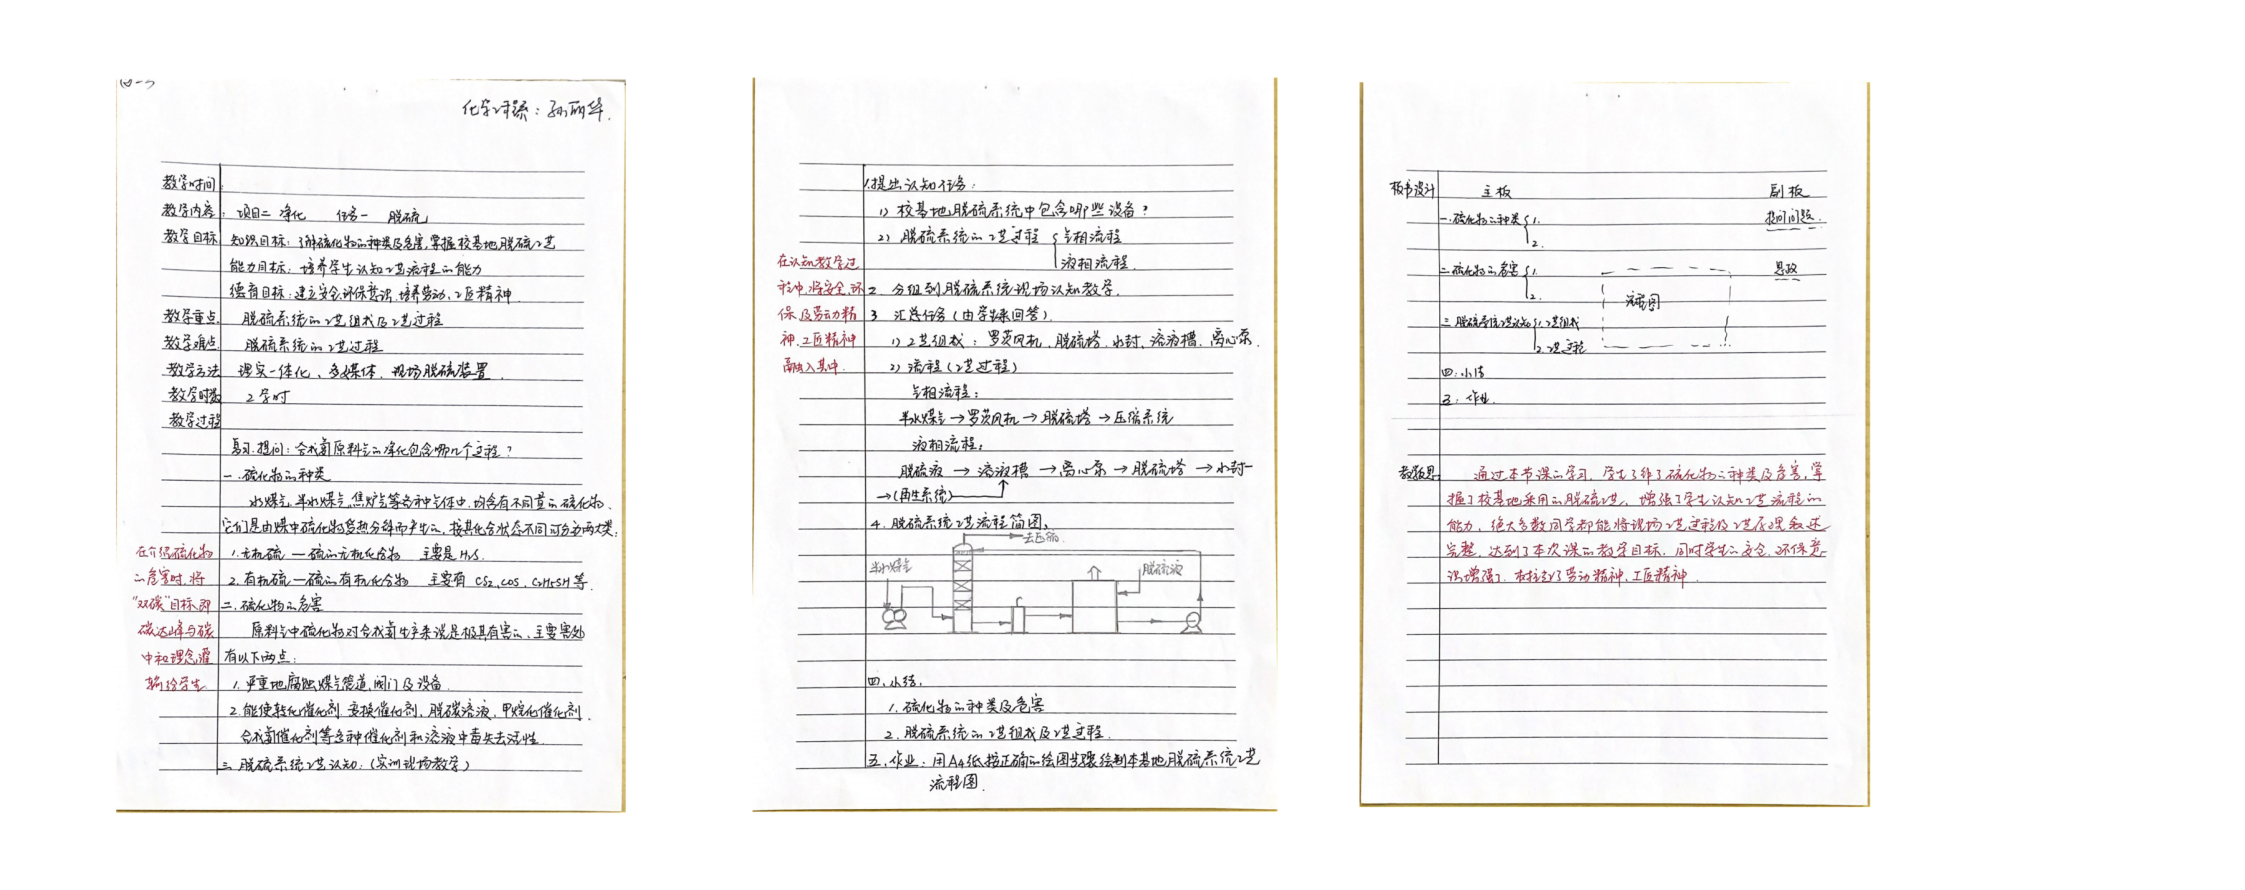 化学课题：孙丽华
教学时间：
教学内容：项目二 净化 任务一 脱硫
教学目标 知识目标：了解硫化物的种类及危害，掌握校基地脱硫工艺
能力目标：培养学生认知工艺流程的能力
德育目标：建立安全、环保意识，培养劳动、工匠精神
教学重点 脱硫系统的工艺组成及工艺过程
教学难点 脱硫系统的工艺过程
教学方法 理实一体化、多媒体、现场脱硫装置
教学时数 2学时
教学过程
复习、提问：合成氨原料气的净化包含哪几个过程？
一、硫化物的种类
水煤气、半水煤气、焦炉气等各种气体中，均含有不同量的硫化物，
它们是由煤中硫化物受热分解而产生的，按其化合状态不同可分为两大类：
1.无机硫—硫的无机化合物 主要是H₂S.
2.有机硫—硫的有机化合物 主要有CS₂、COS、C₂H₅SH等.
二、硫化物的危害
原料气中硫化物对合成氨生产来说是极其有害的，主要害处
有以下两点：
1.严重地腐蚀煤气管道、阀门及设备
2.能使转化催化剂、变换催化剂、脱碳溶液、甲烷化催化剂、
合成氨催化剂等各种催化剂和溶液中毒失去活性
三、脱硫系统工艺认知：（实训现场教学）
在介绍硫化物
的危害时，将
“双碳”目标即
碳达峰与碳
中和理念灌
输给学生
1.提出认知任务：
1）校基地脱硫系统中包含哪些设备？
2）脱硫系统的工艺过程 { 气相流程
液相流程
2 分组到脱硫系统现场认知教学.
3 汇总任务（由学生来回答）
1）工艺组成：罗茨风机、脱硫塔、水封、溶液槽、离心泵.
2）流程（工艺过程）
气相流程：
半水煤气→罗茨风机→脱硫塔→压缩系统
液相流程：
脱硫液→溶液槽→离心泵→脱硫塔→水封—
→（再生系统）
4.脱硫系统工艺流程简图：
去压缩
半水煤气
脱硫液
四、小结.
1.硫化物的种类及危害
2.脱硫系统的工艺组成及工艺过程.
五、作业：用A4纸按正确的绘图步骤绘制本基地脱硫系统工艺
流程图.
在认知教学过
程中，将安全、环
保及劳动精
神、工匠精神
融入其中.
板书设计 主板 副板
一.硫化物的种类{1. 提问问题
2.
二.硫化物的危害{1. 思政
2.
流程图
三.脱硫系统工艺认知{1.工艺组成
2.工艺过程
四.小结
五.作业
教学反思 通过本节课的学习，学生了解了硫化物的种类及危害，掌
握了校基地采用的脱硫工艺，增强了学生认知工艺流程的
能力，绝大多数同学都能将现场工艺过程及工艺原理叙述
完整，达到了本次课的教学目标，同时学生的安全、环保意
识增强了，树立了劳动精神、工匠精神.